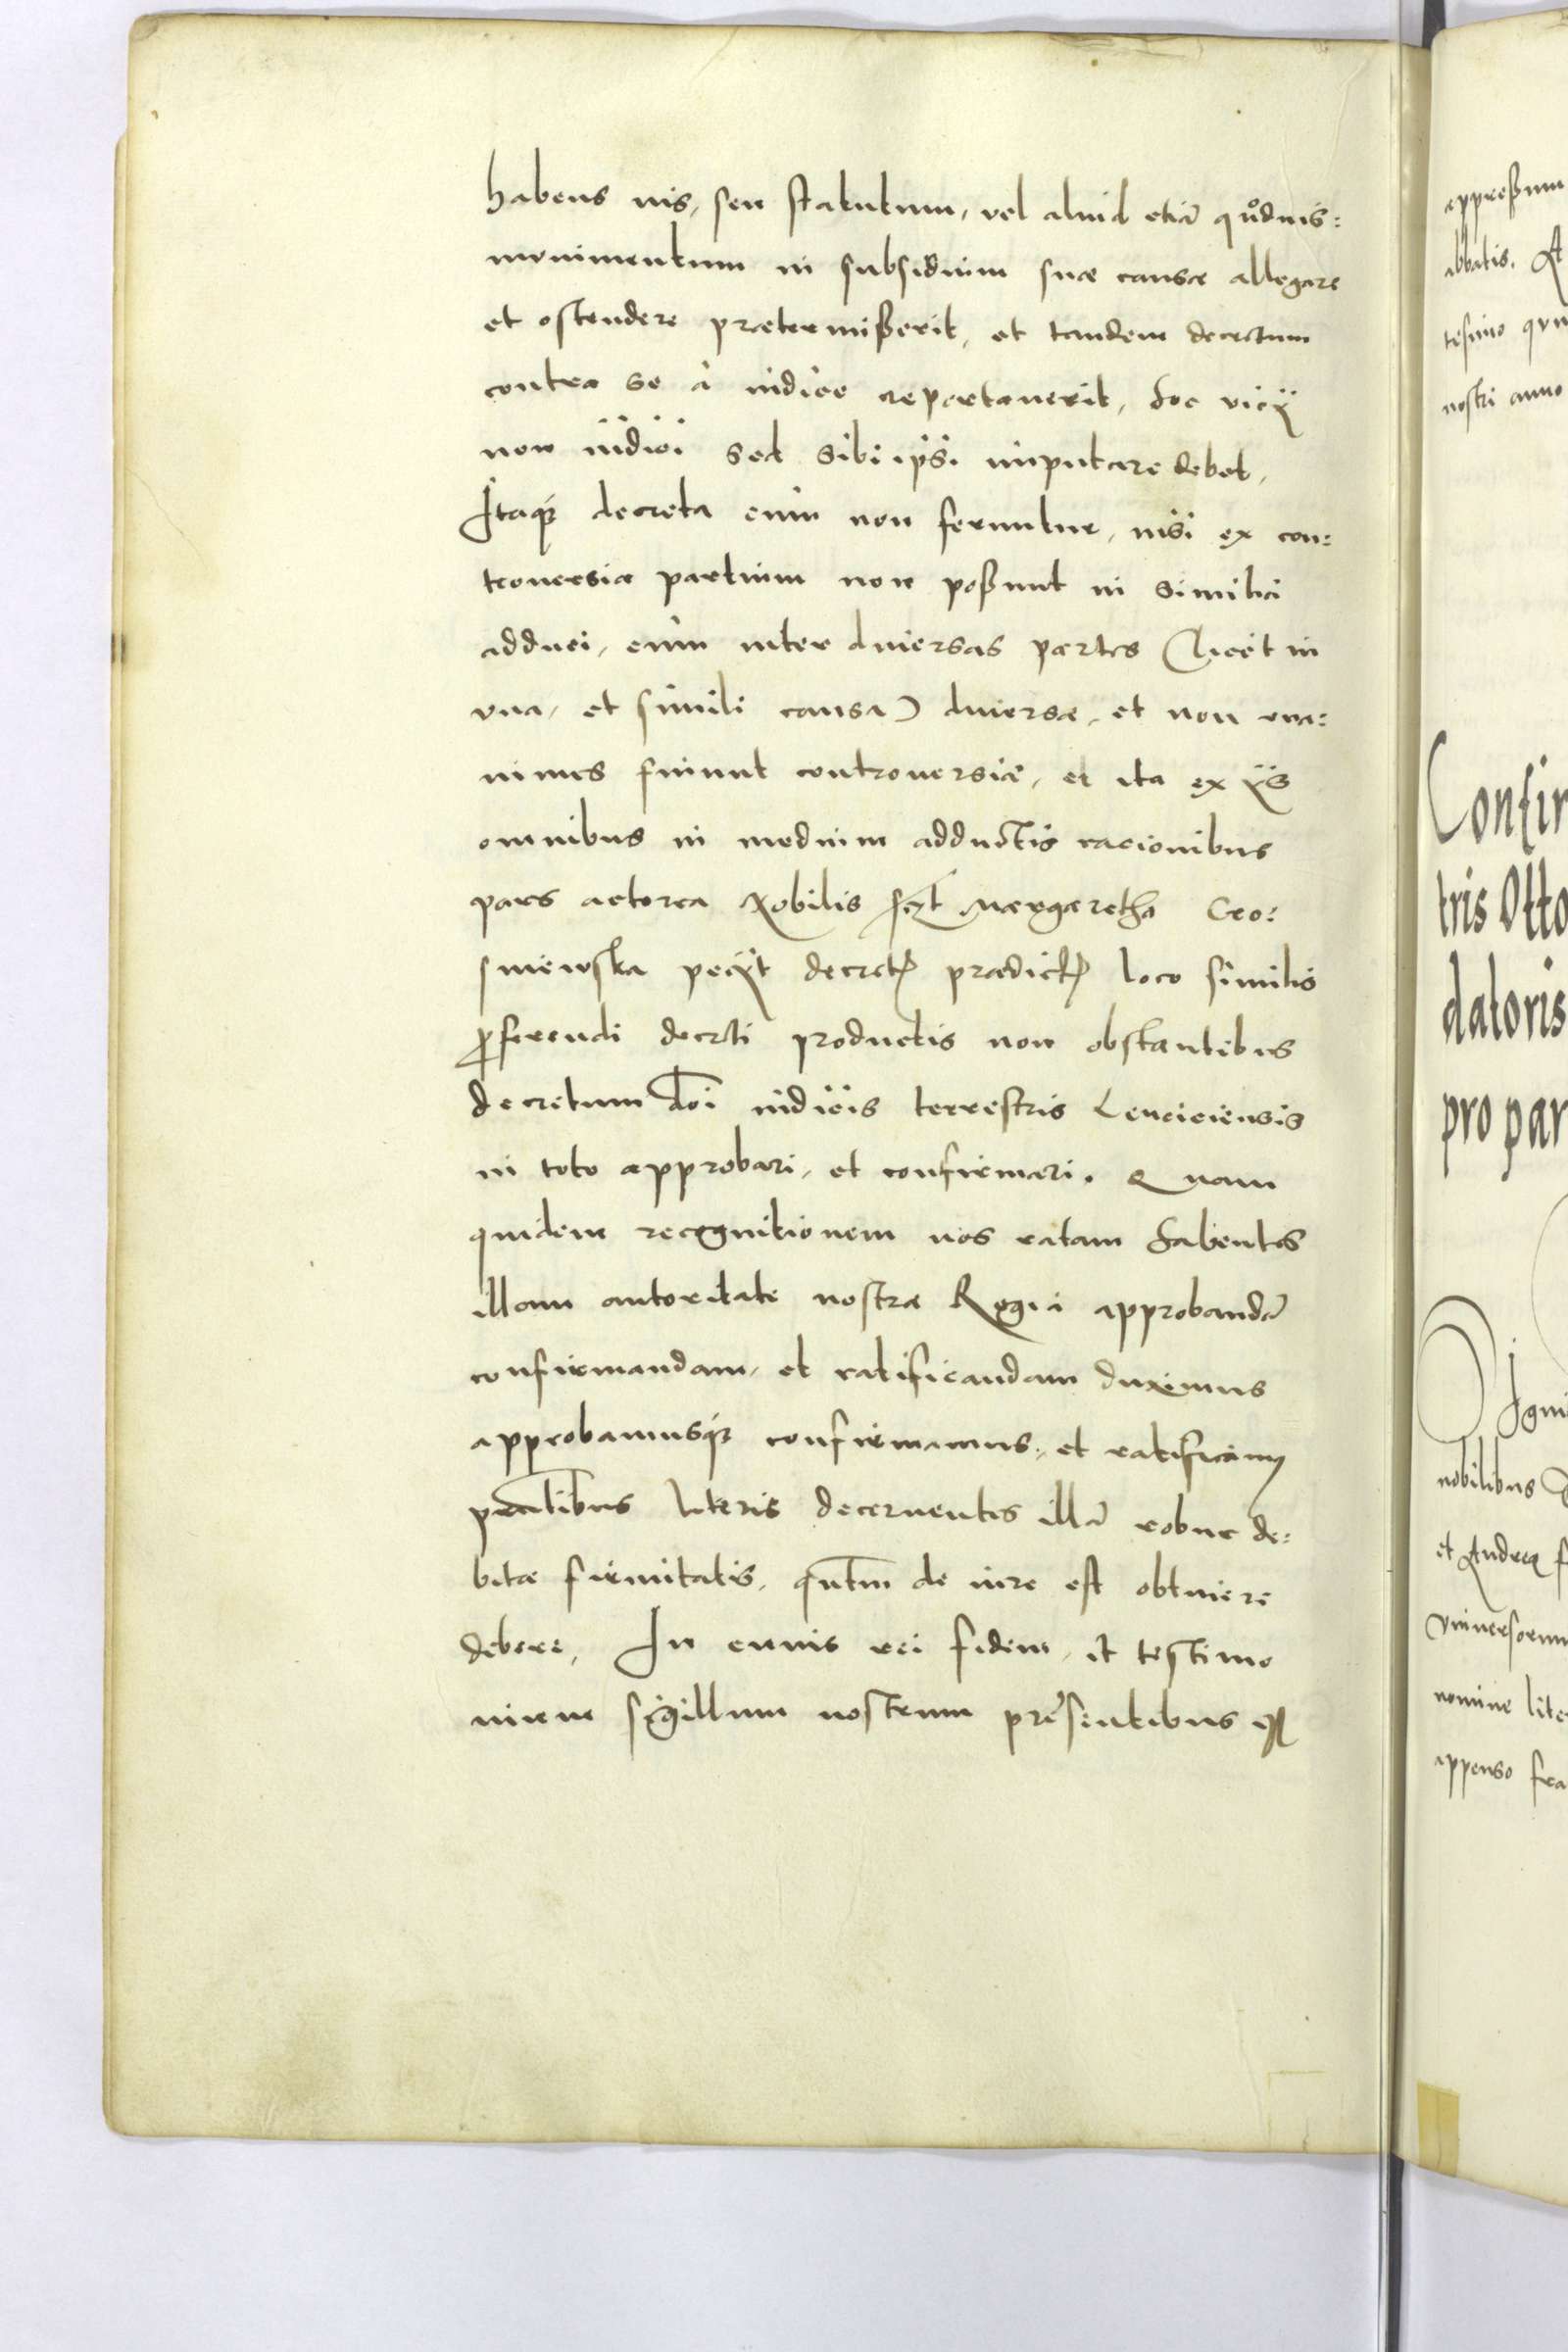 habens ius, seu statutum, vel aliud etiā quoduis:
monimentum in subsidium suæ causæ allegare
et ostendere prætermißerit, et tandem decretum
contra se à iudice reportauerit, hoc vicÿ
non iudici sed sibi ipsi imputare debet,
Itaqȝ decreta cum non feruntur, nisi ex con:
trouersia partium non poßunt in similia
adduci, cum inter diuersas partes (licet in
vna, et simili causa) diuersæ, et non vna:
nimes fiunt controuersiæ, et ita ex ÿs
omnibus in medium adductis racionibus
pars actorea Nobilis Margaretha Cro:
sniewska pecÿt decret prædict loco similis
ꝓferendi decreti productis non obstantibus
decretum dni iudicis terrestris Lenciciensis
in toto approbari, et confirmari. Quam
quidem recognitionem nos ratam habentes
illam autoritate nostra Regia approbandā
confirmandam, et ratificandam duximus
approbamusqȝ confirmamus, et ratificamꝰ
pñtibus literis decernentes illā robur de:
bitæ firmitatis, quntm de iure est obtinere
debere, In cuius rei fidem, et testimo
nium sigillum nostrum præsentibus est
appreßum
abbatis. A
tesimo qui
nostri anno
Confir
tris Otto
datoris
pro par
Digni
nobilibus
et Andrea f
vniuersorum
nomine lite
appenso fra